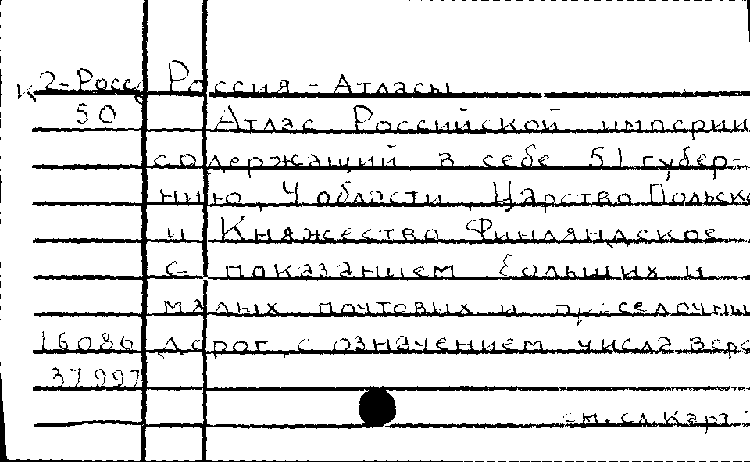 К 2-Росс Россия - Атласы
50 Атлас Российской империи
содержащий в себе 51 губер-
нию, 4 области, Царство Польско
и Княжество Финляндское
с показанием больших и
малых почтовых и проселочны
16086 дорог, с означением числа верс
37997
см. сл. карт.